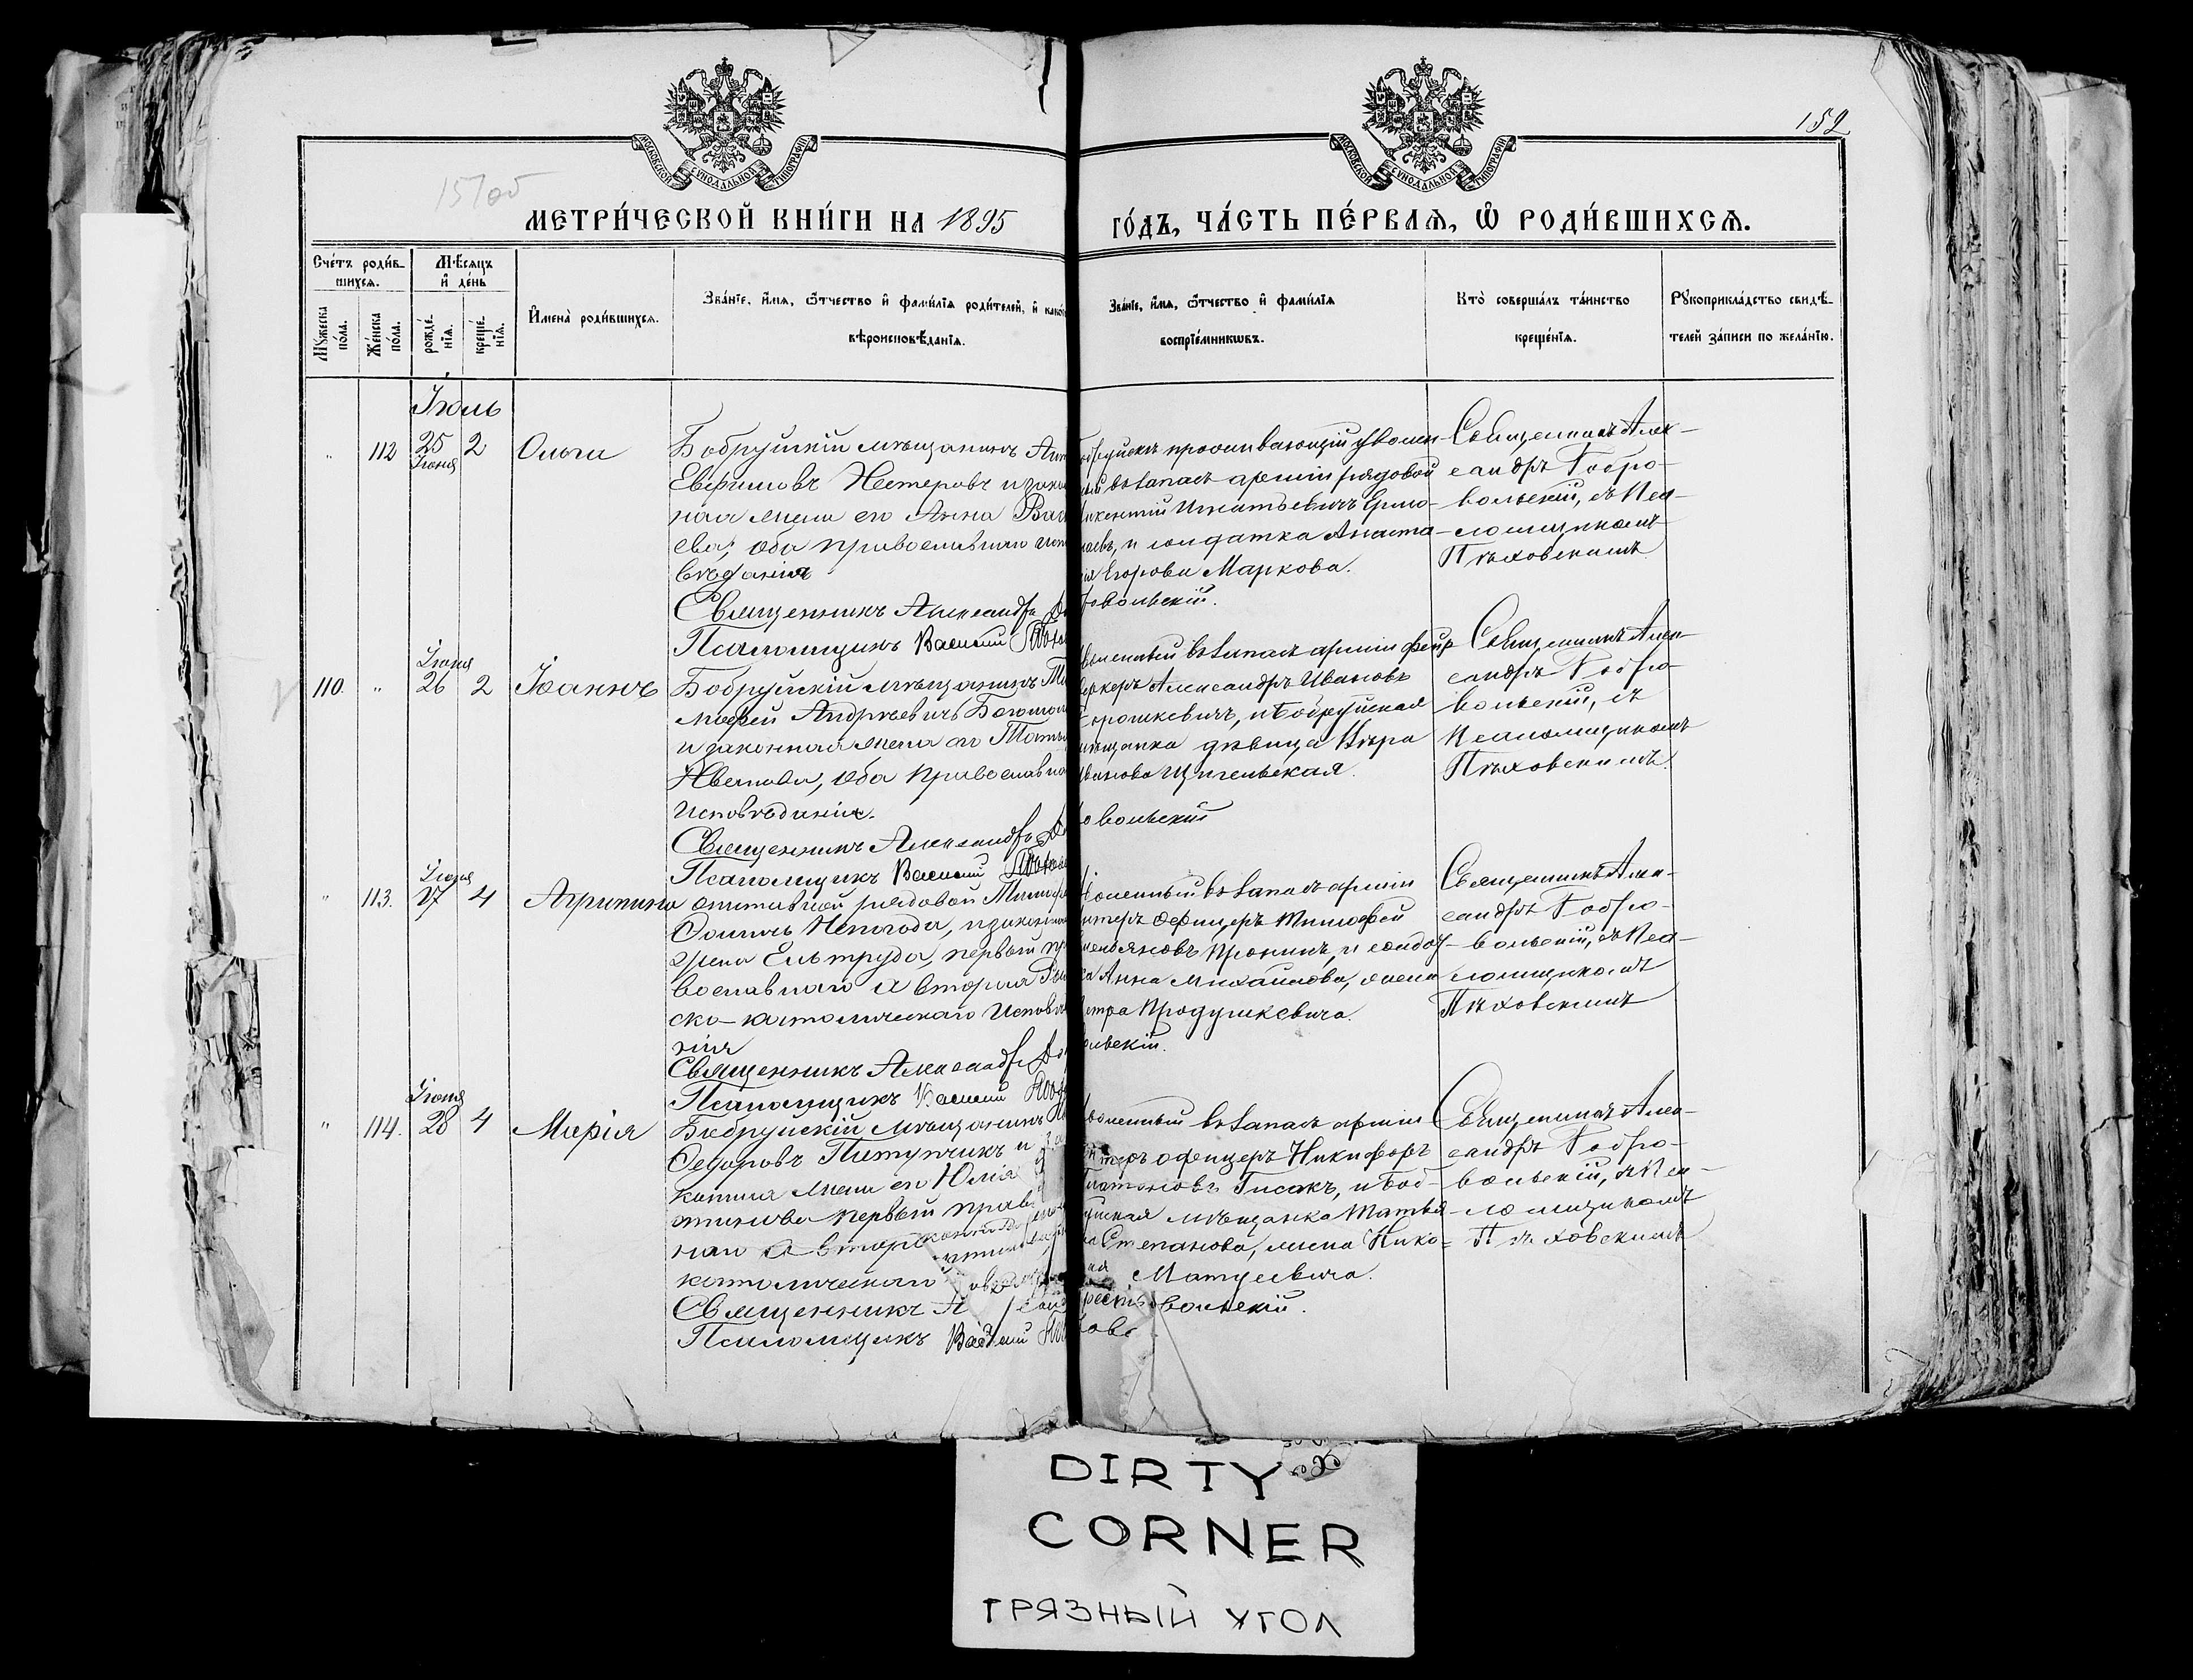 152
157об
МОСКОВСКОЙ СѴНОДАЛЬНОЙ ТИПОГРАФІИ
МОСКОВСКОЙ СѴНОДАЛЬНОЙ ТИПОГРАФІИ
МЕТРИ́ЧЕСКОЙ КНИ́ГИ НА 1895
ГО́ДЪ, ЧА́СТЬ ПЕ́РВАЯ, Ѽ РОДИ́ВШИХСЯ.
Сче́тъ роди́в-
шихся.
Мѣсяцъ
и де́нь
Мꙋжеска
по́ла.
Же́нска
по́ла.
рожде́-
нїя.
креще́-
нїя.
Имена̀ роди́вшихся.
Зва́нїе, и́мя, ѻ́тчество и фами́лїя роди́телей, и како́
вѣроисповѣ́данїя.
Зва́нїе, и́мя, ѻ́тчество и фами́лїя
воспрїе́мникѡвъ.
Кто̀ соверша́лъ та́инство
креще́нїя.
Рꙋкоприкла́дство свидѣ́-
телей за́писи по жела́нїю.
Іюль
" 112 25 Іюня 2 Ольга
Бобруйскій мѣщанинъ Ант
Евфимовъ Нестеровъ и закон
ная жена его Анна Вас
ева, оба православнаго испо
вѣданія
Священникъ Александръ До
Псаломщикъ Василій
бруйскѣ проживающій уволен-
ный въ запасъ арміи рядовой
Викентій Игнатьевичъ Ермо-
лаевъ, и солдатка Анаста-
сія Егорова Маркова.
бровольскій.
Священникъ Алек-
сандръ Добро-
вольскій, съ Пса-
ломщикомъ
Пѣховскимъ
110. " Іюня 26 2 Іоаннъ
Бобруйскій мѣщанинъ Ти
мофей Андреевичъ Богомол
и законная жена его Татья
Иванова, оба православна
исповѣданія.
Священникъ Александръ До
Псаломщикъ Василій
воленный въ запасъ арміи фейр
веркеръ Александръ Ивановъ
Горошкевичъ, и Бобруйская
мѣщанка дѣвица Вѣра
Иванова Цигельская.
овольскій
Священникъ Алек-
сандръ Добро-
вольскій, съ
Псаломщикомъ
Пѣховскимъ.
" 113. Іюня 27 4 Агрипина
отставной рядовой Тимофе
Ѳоминъ Непогода, и законная
жена Ельтруда, первый пра
вославнаго а вторая Рим
ско-католическаго исповѣда
нія
Священникъ Александръ До
Псаломщикъ Василій
Уволенный въ запасъ арміи
унтеръ офицеръ Тимофей
Емельяновъ Пронинъ, и солдат-
ка Анна Михайлова, жена
Петра Продушкевича.
ольскій.
Священникъ Алек-
сандръ Добро-
вольскій, съ Пса-
ломщикомъ
Пѣховскимъ
" 114. Іюня 28 4 Марія
Бобруйскій мѣщанинъ
Ѳедоровъ Питупчикъ и за
конная жена его Юлія
стинова первый правос
наго а втора
католическаго
Священникъ А
Псаломщикъ Василій
Уволенный въ запасъ арміи
унтеръ офицеръ Никифоръ
Платоновъ Гисакъ, и Боб-
руйская мѣщанка Татья-
на Степанова, жена Нико-
лая Матусевича.
вольскій.
Священникъ Алек-
сандръ Добро-
вольскій, съ Пса-
ломщикомъ
Пѣховскимъ
DIRTY
CORNER
ГРЯЗНЫЙ УГОЛ